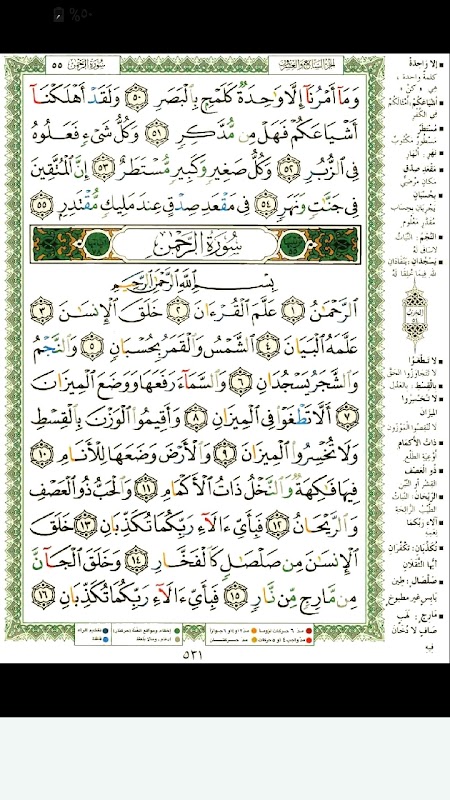 %٥٠
سُورَةُ الرَّحْمٰن ٥٥
الجزء السابع والعشرون
وَمَآ أَمْرُنَآ إِلَّا وَٰحِدَةٌ كَلَمْحٍۭ بِٱلْبَصَرِ ٥٠ وَلَقَدْ أَهْلَكْنَآ
أَشْيَاعَكُمْ فَهَلْ مِن مُّدَّكِرٍ ٥١ وَكُلُّ شَىْءٍ فَعَلُوهُ
فِى ٱلزُّبُرِ ٥٢ وَكُلُّ صَغِيرٍ وَكَبِيرٍ مُّسْتَطَرٌ ٥٣ إِنَّ ٱلْمُتَّقِينَ
فِى جَنَّٰتٍ وَنَهَرٍ ٥٤ فِى مَقْعَدِ صِدْقٍ عِندَ مَلِيكٍ مُّقْتَدِرٍۭ ٥٥
سُورَةُ الرَّحْمٰن
بِسْمِ ٱللَّهِ ٱلرَّحْمَٰنِ ٱلرَّحِيمِ
ٱلرَّحْمَٰنُ ١ عَلَّمَ ٱلْقُرْءَانَ ٢ خَلَقَ ٱلْإِنسَٰنَ ٣
عَلَّمَهُ ٱلْبَيَانَ ٤ ٱلشَّمْسُ وَٱلْقَمَرُ بِحُسْبَانٍ ٥ وَٱلنَّجْمُ
وَٱلشَّجَرُ يَسْجُدَانِ ٦ وَٱلسَّمَآءَ رَفَعَهَا وَوَضَعَ ٱلْمِيزَانَ
٧ أَلَّا تَطْغَوْا۟ فِى ٱلْمِيزَانِ ٨ وَأَقِيمُوا۟ ٱلْوَزْنَ بِٱلْقِسْطِ
وَلَا تُخْسِرُوا۟ ٱلْمِيزَانَ ٩ وَٱلْأَرْضَ وَضَعَهَا لِلْأَنَامِ ١٠
فِيهَا فَٰكِهَةٌ وَٱلنَّخْلُ ذَاتُ ٱلْأَكْمَامِ ١١ وَٱلْحَبُّ ذُو ٱلْعَصْفِ
وَٱلرَّيْحَانُ ١٢ فَبِأَىِّ ءَالَآءِ رَبِّكُمَا تُكَذِّبَانِ ١٣ خَلَقَ
ٱلْإِنسَٰنَ مِن صَلْصَٰلٍ كَٱلْفَخَّارِ ١٤ وَخَلَقَ ٱلْجَآنَّ
مِن مَّارِجٍ مِّن نَّارٍ ١٥ فَبِأَىِّ ءَالَآءِ رَبِّكُمَا تُكَذِّبَانِ ١٦
٥٣١
■ إلا واحدةٌ
كلمة واحدة ،
هي « كُنْ »
■ أشياعكم : أمثالكم
في الكفر
■ مُستطرٌ
مسطورٌ مكتوب
■ نهرٍ : أنهار
■ مقعد صدق
مكانٍ مرضيّ
■ بحسبان
يجريان بحسابٍ
مقدّر معلومٍ
■ النّجم : النّبات
لا ساق له
■ يسجدان : ينقادان
لله فيما خُلقا له
■ لا تطغوا
لا تتجاوزوا الحقّ
■ بالقسط : بالعدل
■ لا تخسروا
الميزان
لا تنقصوا الموزون
■ ذات الأكمام
أوعية الطّلع
■ ذو العصف
القشر أو التّبن
■ الرّيحان : النّبات
الطّيّب الرّائحة
■ آلاء ربّكما
نعمه
■ تكذّبان : تكفران
أيّها الثّقلان
■ صلصال : طين
يابس غير مطبوخ
■ مارجٍ : لهبٍ
صافٍ لا دخان
فيه